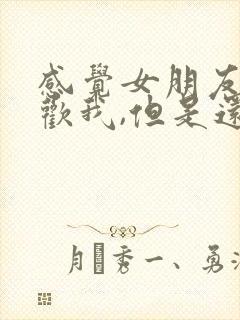 感覺女朋友
歡我,但是還
秀一、勇